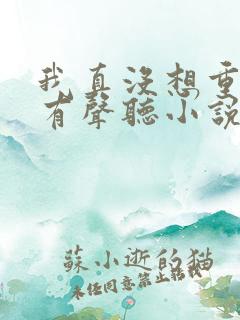 我真沒想重
有聲聽小說
蘇小逝的猫
未经同意禁止转载